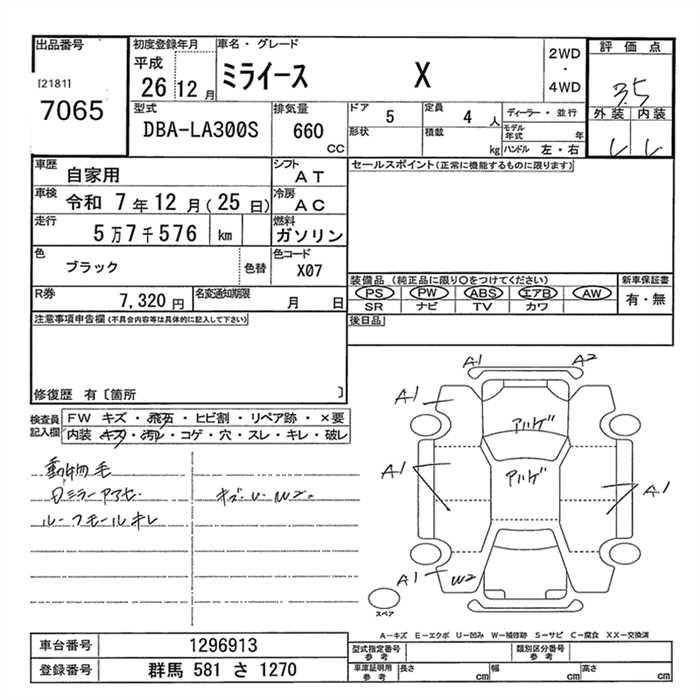 出品番号
[2181]
7065
初度登録年月
平成
26 12 月
車名・グレード
ミライース X
2WD
・
4WD
評価点
3.5
外装 内装
型式
DBA-LA300S
排気量
660
CC
ドア 5
形状
定員 4 人
積載 kg
ディーラー・並行
モデル年式 年
ハンドル 左・右
車歴
自家用
シフト
AT
車検
令和 7年 12月(25日)
冷房
AC
走行
5万7千576 km
燃料
ガソリン
色
ブラック
色替
色コード
X07
R券
7,320 円
名変通知期限
月 日
セールスポイント(正常に機能するものに限ります)
装備品(純正品に限り○をつけてください)
PS PW ABS エアB AW
SR ナビ TV カワ
新車保証書
有・無
後日品
注意事項申告欄(不具合内容等は具体的に記入して下さい)
修復歴 有〔箇所 〕
検査員記入欄
FW キズ・飛石・ヒビ割・リペア跡・×要
内装 キズ・汚レ・コゲ・穴・スレ・キレ・破レ
動物毛
ルーフモールキレ
キズ・U・W2。
A1 A2
A1
アハゲ
アハゲ
A1
A1
A1 W2
スペア
A-キズ E-エクボ U-凹み W-補修跡 S-サビ C-腐食 XX-交換済
車台番号 1296913
登録番号 群馬 581 さ 1270
型式指定番号
参考
類別区分番号
参考
車庫証明用
参考
長さ cm 幅 cm 高さ cm